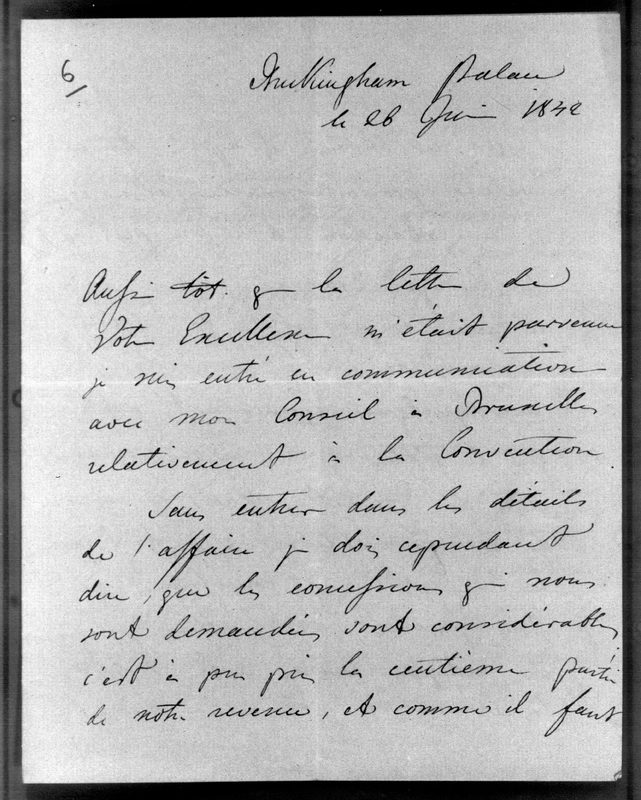 6/
Buckingham Palace
le 26 Juin 1842
Aussi tôt que la lettre de
Votre Excellence m'était parvenue
je suis entré en communication
avec mon Conseil à Bruxelles
relativement à la Convention
Sans entrer dans les détails
de l'affaire je dois cependant
dire, que les concessions qui nous
sont demandées sont considérables
c'est à peu près la centième partie
de notre revenu, et comme il faut